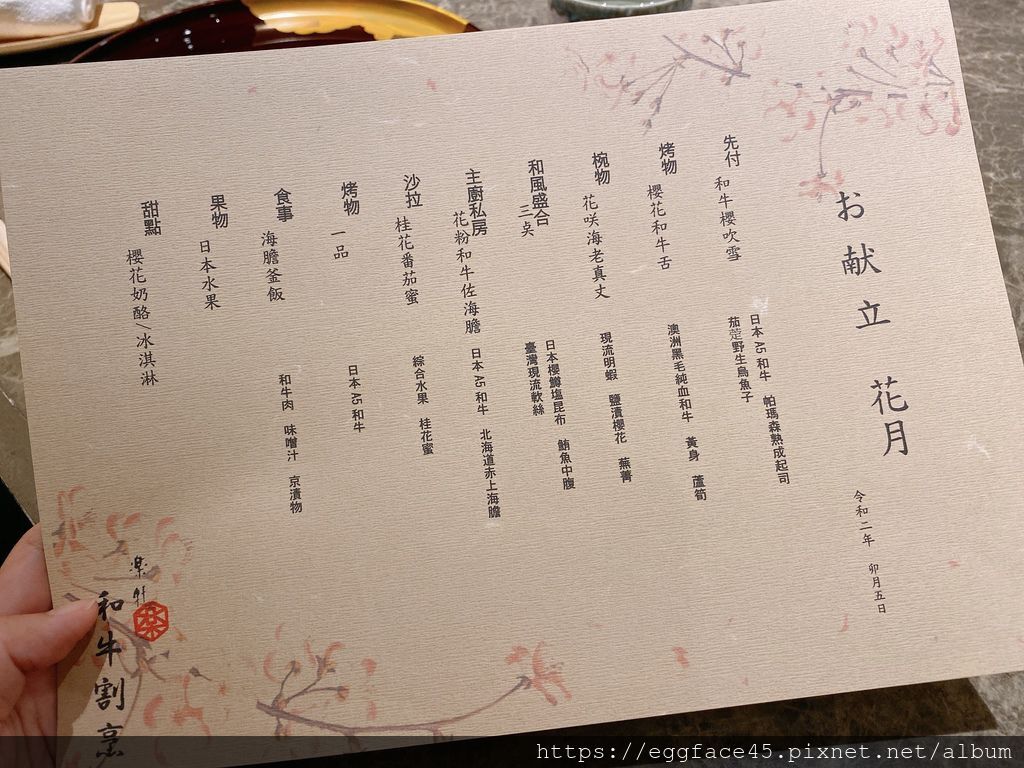 お献立 花月
令和二年 卯月五日
先付 和牛櫻吹雪
日本A5和牛 帕瑪森熟成起司
茄萣野生烏魚子
烤物 櫻花和牛舌
澳洲黑毛純血和牛 黃身 蘆筍
椀物 花咲海老真丈
現流明蝦 鹽漬櫻花 蕪菁
和風盛合 三点
日本櫻鱒塩昆布 鮪魚中腹
臺灣現流軟絲
主廚私房 花粉和牛佐海膽
日本A5和牛 北海道赤上海膽
沙拉 桂花番茄蜜
綜合水果 桂花蜜
烤物 一品
日本A5和牛
食事 海膽釜飯
和牛肉 味噌汁 京漬物
果物 日本水果
甜點 櫻花奶酪/冰淇淋
楽軒
和牛割烹
https://eggface45.pixnet.net/album